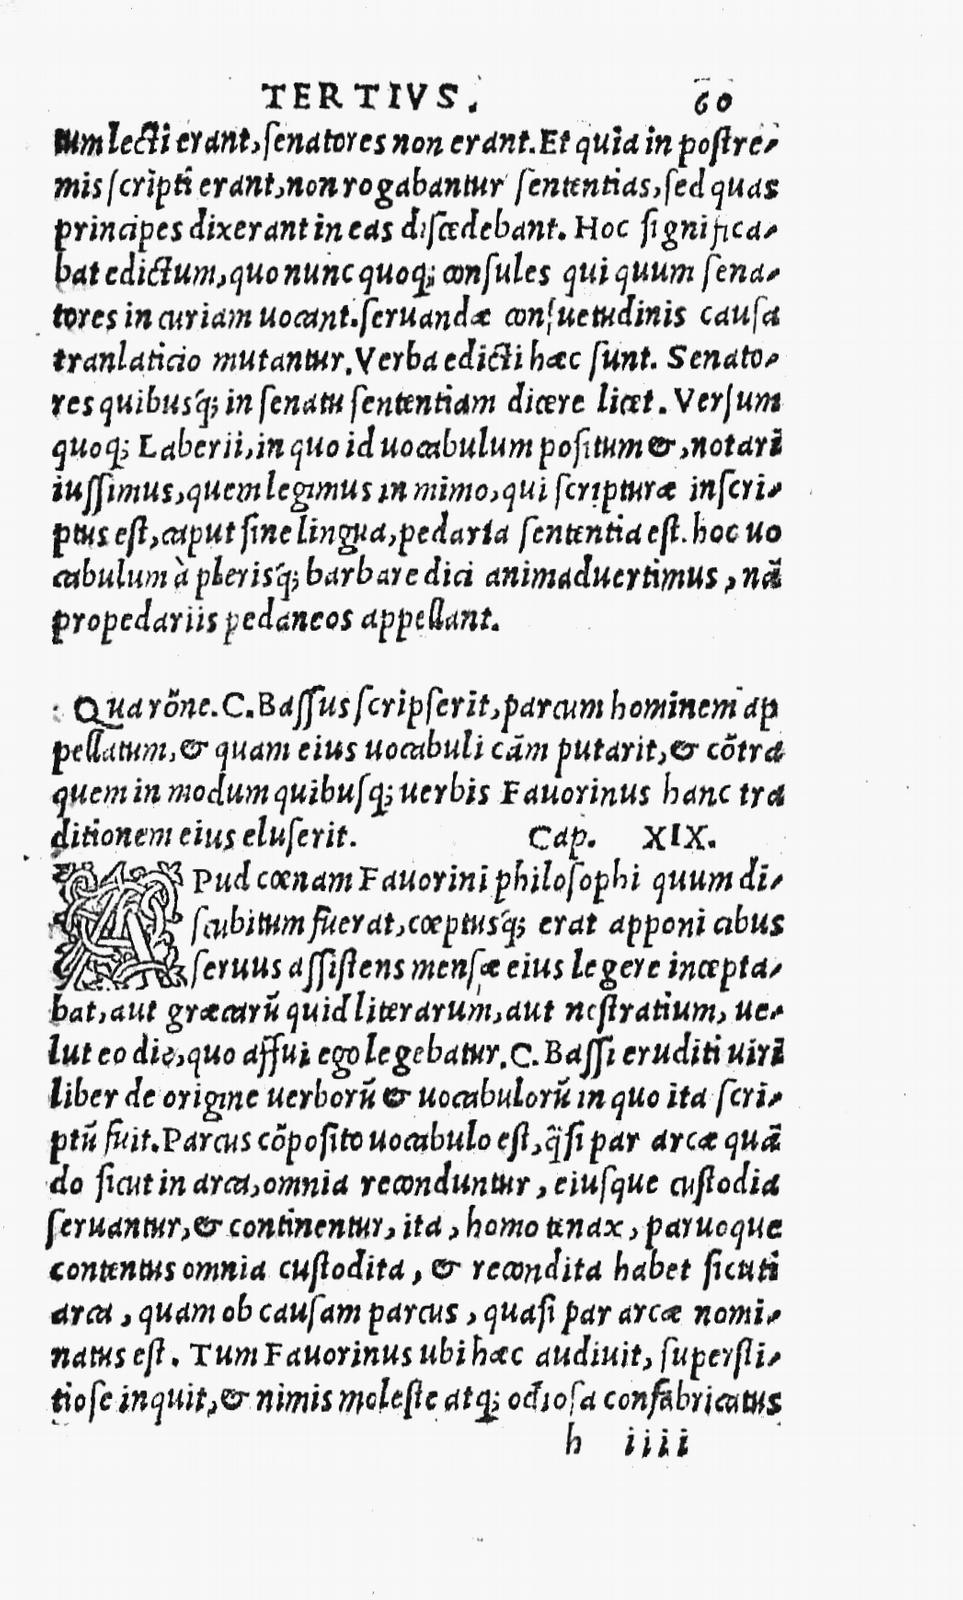 TERTIVS. 60
tum lecti erant, senatores non erant. Et quia in postre-
mis scripti erant, non rogabantur sententias, sed quas
principes dixerant in eas discedebant. Hoc significa-
bat edictum, quo nunc quoq; consules qui quum sena-
tores in curiam uocant. seruandæ consuetudinis causa
tranlaticio mutantur. Verba edicti hæc sunt. Senato-
res quibusq́; in senatu sententiam dicere licet. Versum
quoq; Laberii, in quo id uocabulum positum &, notari
iussimus, quem legimus in mimo, qui scripturæ inscri-
ptus est, caput sine lingua, pedaria sententia est. hoc uo
cabulum à plerisq́; barbare dici animaduertimus, nã
propedariis pedaneos appellant.
Qua rõne. C. Bassus scripserit, parcum hominem ap
pellatum, & quam eius uocabuli cãm putarit, & cõtra
quem in modum quibusq; uerbis Fauorinus hanc tra
ditionem eius eluserit. Cap. XIX.
APud cœnam Fauorini philosophi quum di-
scubitum fuerat, cœptusq́; erat apponi cibus
seruus assistens mensæ eius legere incepta-
bat, aut græcarũ quid literarum, aut nostratium, ue-
lut eo die, quo affui ego legebatur. C. Bassi eruditi uiri
liber de origine uerborũ & uocabulorũ in quo ita scri-
ptũ fuit. Parcus cõposito uocabulo est, q̃si par arcæ quã
do sicut in arca, omnia reconduntur, eiusque custodia
seruantur, & continentur, ita, homo tenax, paruoque
contentus omnia custodita, & recondita habet sicuti
arca, quam ob causam parcus, quasi par arcæ nomi-
natus est. Tum Fauorinus ubi hæc audiuit, supersti-
tiose inquit, & nimis moleste atq; odiosa confabricatus
h iiii